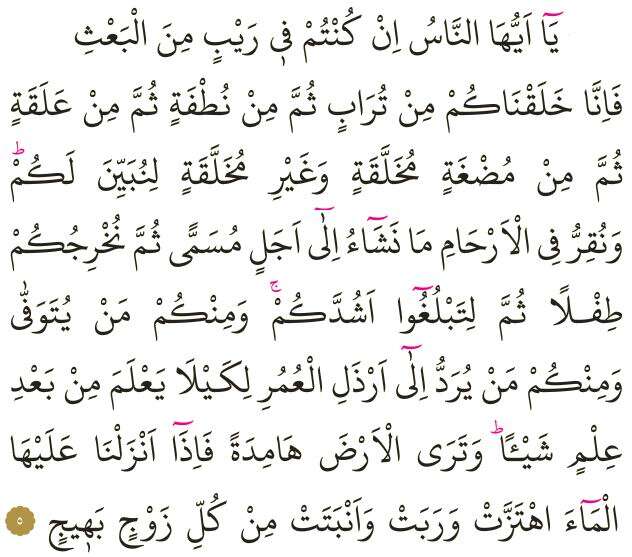 يَٓا اَيُّهَا النَّاسُ اِنْ كُنْتُمْ ف۪ي رَيْبٍ مِنَ الْبَعْثِ
فَاِنَّا خَلَقْنَاكُمْ مِنْ تُرَابٍ ثُمَّ مِنْ نُطْفَةٍ ثُمَّ مِنْ عَلَقَةٍ
ثُمَّ مِنْ مُضْغَةٍ مُخَلَّقَةٍ وَغَيْرِ مُخَلَّقَةٍ لِنُبَيِّنَ لَكُمْۜ
وَنُقِرُّ فِي الْاَرْحَامِ مَا نَشَٓاءُ اِلٰٓى اَجَلٍ مُسَمًّى ثُمَّ نُخْرِجُكُمْ
طِفْلًا ثُمَّ لِتَبْلُغُٓوا اَشُدَّكُمْۚ وَمِنْكُمْ مَنْ يُتَوَفّٰى
وَمِنْكُمْ مَنْ يُرَدُّ اِلٰٓى اَرْذَلِ الْعُمُرِ لِكَيْلَا يَعْلَمَ مِنْ بَعْدِ
عِلْمٍ شَيْـًٔاۜ وَتَرَى الْاَرْضَ هَامِدَةً فَاِذَٓا اَنْزَلْنَا عَلَيْهَا
الْمَٓاءَ اهْتَزَّتْ وَرَبَتْ وَاَنْبَتَتْ مِنْ كُلِّ زَوْجٍ بَه۪يجٍ ٥